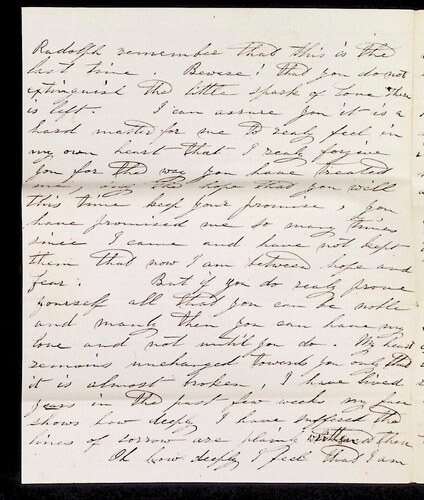 Rudolph remember that this is the
last time. Beware! that you do not
extinguish the little spark of love there
is left. I can assure you it is a
hard matter for me to realy feel in
my own heart that I realy forgive
you for the way you have treated
me, only the hope that you will
this time keep your promise, you
have promised me so many times
since I came and have not kept
them that now I am between hope and
fear. But if you do realy prove
yourself all that you can be noble
and manly then you can have my
love and not until you do. My heart
remains unchanged towards you only that
it is almost broken, I have lived
years in the past few weeks my face
shows how deeply I have suffered the
lines of sorrow are plainly written there
Oh how deeply I feel that I am